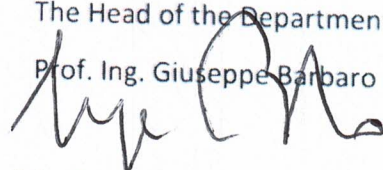 The Head of the Departmen
Prof. Ing. Giuseppe Barbaro